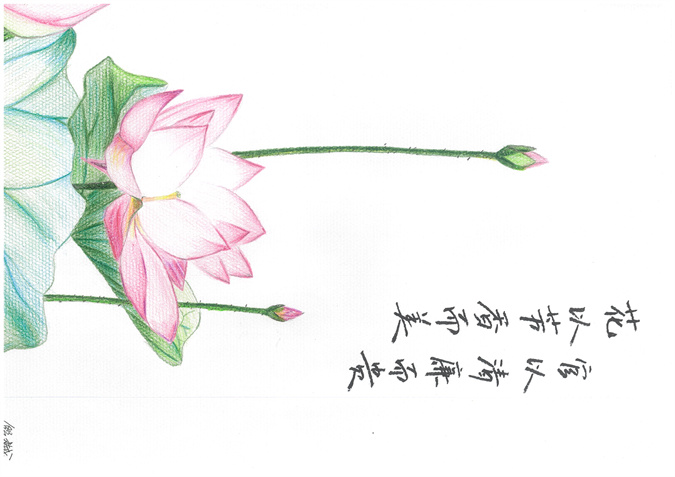 花以芳香而美
官以清廉而贵